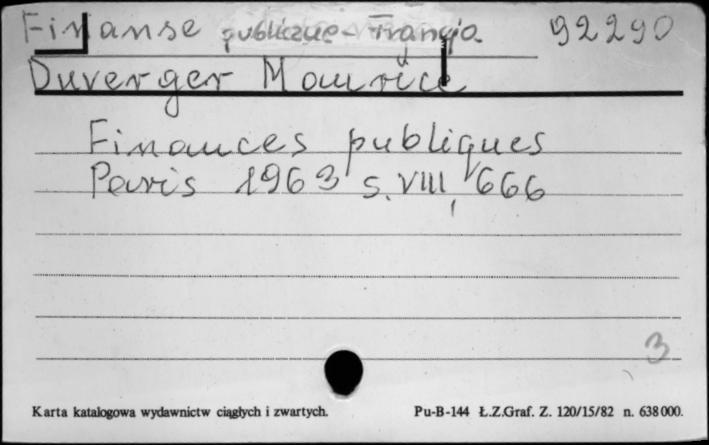 Finanse publiczne - Francja 92290
Duverger Maurice
Finances publiques
Paris 1963 s. VIII, 666
3
Karta katalogowa wydawnictw ciągłych i zwartych. Pu-B-144 Ł.Z.Graf. Z. 120/15/82 n. 638000.